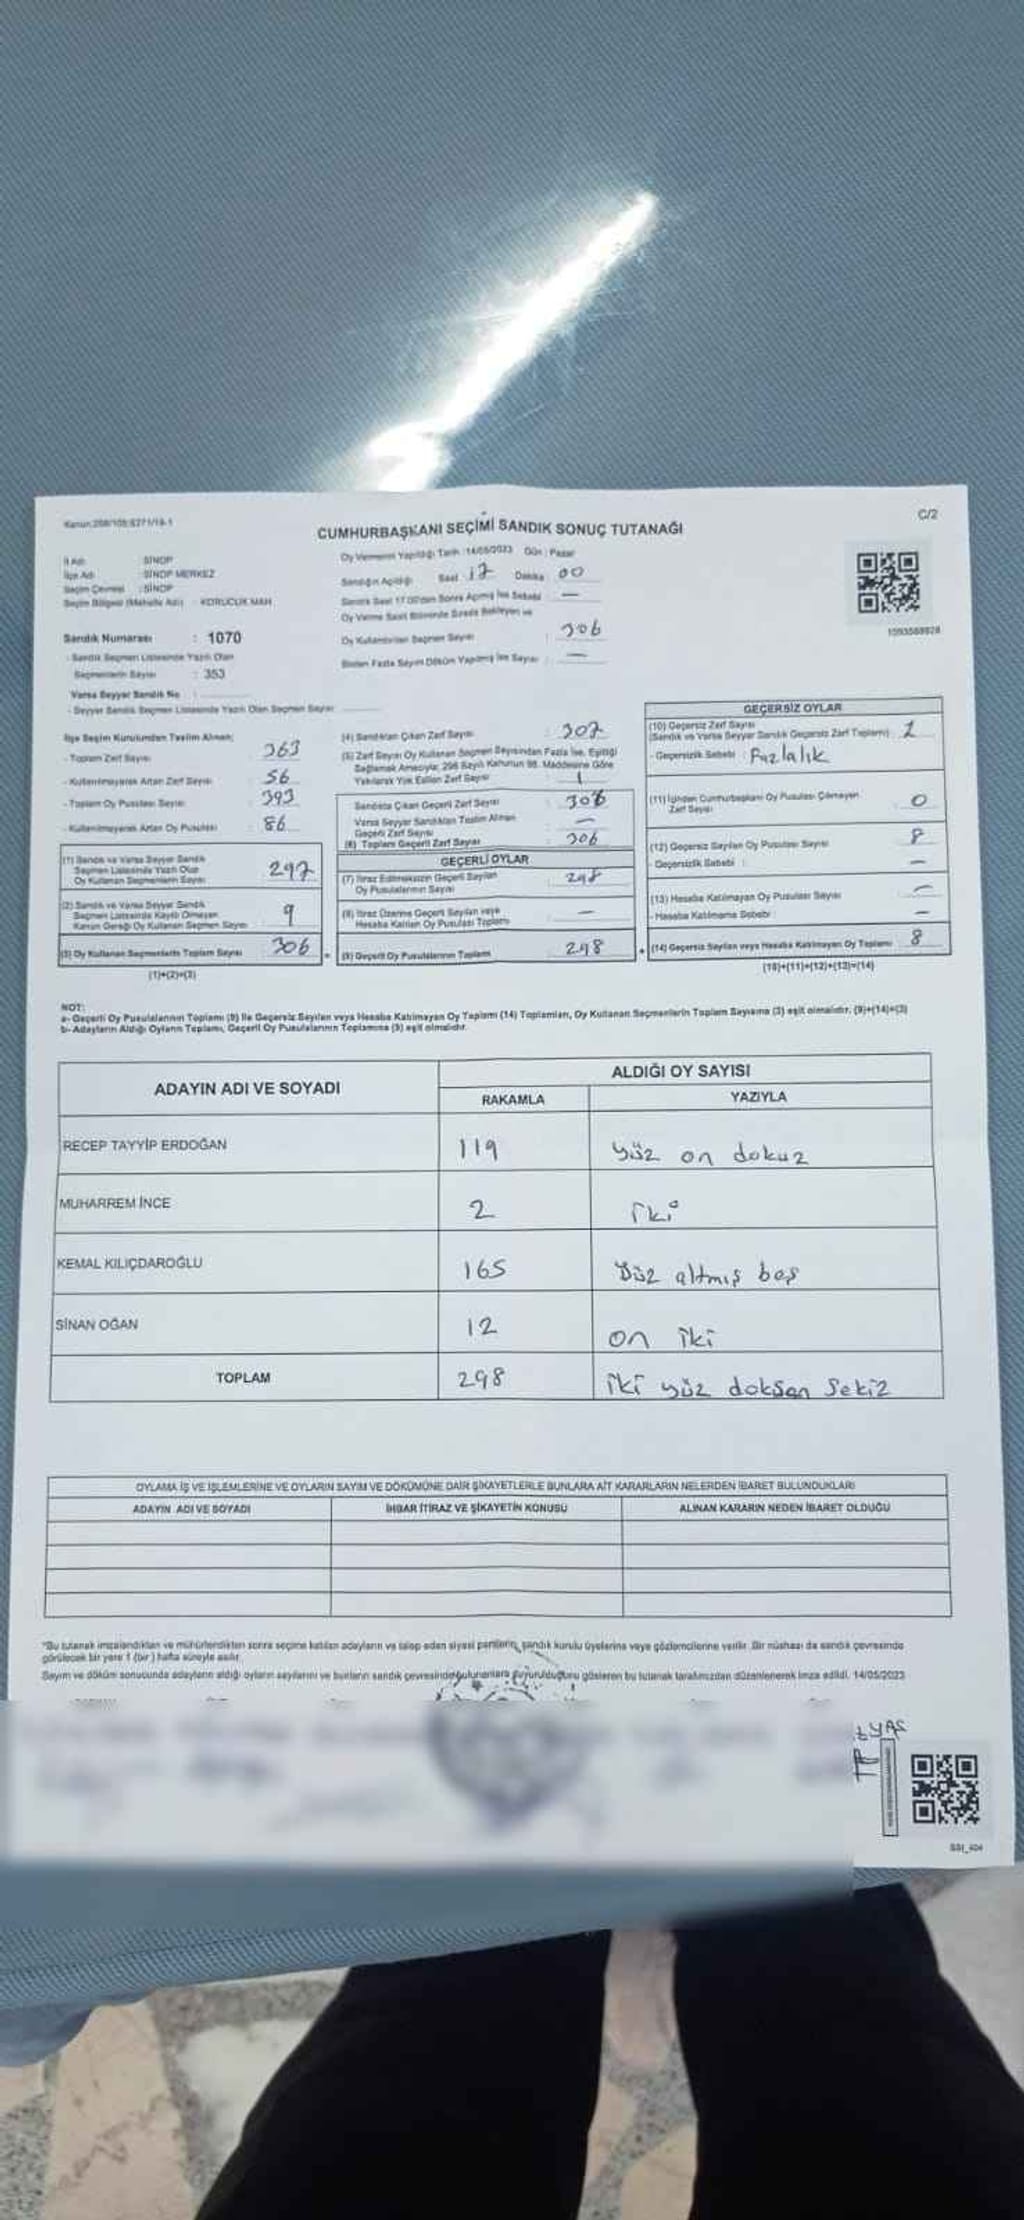 Kanun:298/105;6271/19-1
C/2
CUMHURBAŞKANI SEÇİMİ SANDIK SONUÇ TUTANAĞI
İl Adı : SİNOP
İlçe Adı : SİNOP MERKEZ
Seçim Çevresi : SİNOP
Seçim Bölgesi (Mahalle Adı) : KORUCUK MAH
Sandık Numarası : 1070
- Sandık Seçmen Listesinde Yazılı Olan
Seçmenlerin Sayısı : 353
Varsa Seyyar Sandık No :
- Seyyar Sandık Seçmen Listesinde Yazılı Olan Seçmen Sayısı
Oy Vermenin Yapıldığı Tarih :14/05/2023 Gün : Pazar
Sandığın Açıldığı Saat 17 Dakika 00
Sandık Saat 17.00'den Sonra Açılmış İse Sebebi —
Oy Verme Saati Bitiminde Sırada Bekleyen ve
Oy Kullandırılan Seçmen Sayısı : 306
Birden Fazla Sayım Döküm Yapılmış İse Sayısı : —
1093588828
İlçe Seçim Kurulundan Teslim Alınan;
- Toplam Zarf Sayısı : 363
- Kullanılmayarak Artan Zarf Sayısı : 56
- Toplam Oy Pusulası Sayısı : 393
- Kullanılmayarak Artan Oy Pusulası : 86
(1) Sandık ve Varsa Seyyar Sandık
Seçmen Listesinde Yazılı Olup
Oy Kullanan Seçmenlerin Sayısı 297
(2) Sandık ve Varsa Seyyar Sandık
Seçmen Listesinde Kayıtlı Olmayan
Kanun Gereği Oy Kullanan Seçmen Sayısı 9
(3) Oy Kullanan Seçmenlerin Toplam Sayısı 306
(1)+(2)=(3)
(4) Sandıktan Çıkan Zarf Sayısı : 307
(5) Zarf Sayısı Oy Kullanan Seçmen Sayısından Fazla İse, Eşitliği
Sağlamak Amacıyla; 298 Sayılı Kanunun 98. Maddesine Göre
Yakılarak Yok Edilen Zarf Sayısı : 1
Sandıkta Çıkan Geçerli Zarf Sayısı : 306
Varsa Seyyar Sandıktan Teslim Alınan
Geçerli Zarf Sayısı : —
(6) Toplam Geçerli Zarf Sayısı : 306
GEÇERLİ OYLAR
(7) İtiraz Edilmeksizin Geçerli Sayılan
Oy Pusulalarının Sayısı : 298
(8) İtiraz Üzerine Geçerli Sayılan veya
Hesaba Katılan Oy Pusulası Toplamı : —
(9) Geçerli Oy Pusulalarının Toplamı : 298
GEÇERSİZ OYLAR
(10) Geçersiz Zarf Sayısı
(Sandık ve Varsa Seyyar Sandık Geçersiz Zarf Toplamı) : 1
- Geçersizlik Sebebi : Fazlalık
(11) İçinden Cumhurbaşkanı Oy Pusulası Çıkmayan
Zarf Sayısı : 0
(12) Geçersiz Sayılan Oy Pusulası Sayısı : 8
- Geçersizlik Sebebi : —
(13) Hesaba Katılmayan Oy Pusulası Sayısı : —
- Hesaba Katılmama Sebebi : —
(14) Geçersiz Sayılan veya Hesaba Katılmayan Oy Toplamı : 8
(10)+(11)+(12)+(13)=(14)
NOT:
a- Geçerli Oy Pusulalarının Toplamı (9) İle Geçersiz Sayılan veya Hesaba Katılmayan Oy Toplamı (14) Toplamları, Oy Kullanan Seçmenlerin Toplam Sayısına (3) eşit olmalıdır. (9)+(14)=(3)
b- Adayların Aldığı Oyların Toplamı, Geçerli Oy Pusulalarının Toplamına (9) eşit olmalıdır.
ADAYIN ADI VE SOYADI
ALDIĞI OY SAYISI
RAKAMLA YAZIYLA
RECEP TAYYİP ERDOĞAN 119 yüz on dokuz
MUHARREM İNCE 2 iki
KEMAL KILIÇDAROĞLU 165 Yüz altmış beş
SİNAN OĞAN 12 on iki
TOPLAM 298 iki yüz doksan sekiz
OYLAMA İŞ VE İŞLEMLERİNE VE OYLARIN SAYIM VE DÖKÜMÜNE DAİR ŞİKAYETLERLE BUNLARA AİT KARARLARIN NELERDEN İBARET BULUNDUKLARI
ADAYIN ADI VE SOYADI İHBAR İTİRAZ VE ŞİKAYETİN KONUSU ALINAN KARARIN NEDEN İBARET OLDUĞU
*Bu tutanak imzalandıktan ve mühürlendikten sonra seçime katılan adayların ve talep eden siyasi partilerin, sandık kurulu üyelerine veya gözlemcilerine verilir. Bir nüshası da sandık çevresinde
görülecek bir yere 1 (bir) hafta süreyle asılır.
Sayım ve döküm sonucunda adayların aldığı oyların sayılarını ve bunların sandık çevresinde bulunanlara duyurulduğunu gösteren bu tutanak tarafımızdan düzenlenerek imza edildi. 14/05/2023
SSI_404